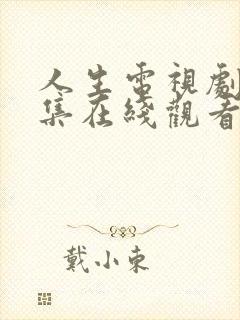 人生電視劇
集在綫觀看
戴小東